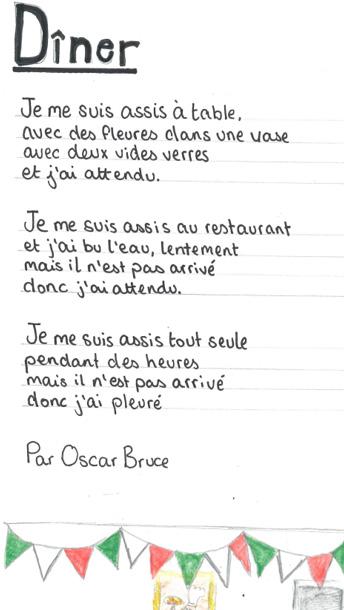 Dîner
Je me suis assis à table,
avec des fleures dans une vase
avec deux vides verres
et j'ai attendu.
Je me suis assis au restaurant
et j'ai bu l'eau, lentement
mais il n'est pas arrivé
donc j'ai attendu.
Je me suis assis tout seule
pendant des heures
mais il n'est pas arrivé
donc j'ai pleuré
Par Oscar Bruce